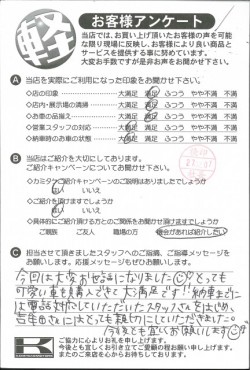 軽
お客様アンケート
当店では、お買い上げ頂いたお客様の声を可能
な限り現場に反映し、お客様により良い商品と
サービスを提供する事に努めています。
大変お手数ですが是非お声をお聞かせ下さい。
A 当店を実際にご利用になった印象をお聞かせ下さい。
◇店の印象 大満足 満足 ふつう やや不満 不満
◇店内・展示場の清掃 大満足 満足 ふつう やや不満 不満
◇お車の品揃え 大満足 満足 ふつう やや不満 不満
◇営業スタッフの対応 大満足 満足 ふつう やや不満 不満
◇納車時のお車の状態 大満足 満足 ふつう やや不満 不満
B 当店はご紹介を大切にしております。
ご紹介キャンペーンについてお聞かせ下さい。
◇カミタケご紹介キャンペーンの説明はありましたでしょうか
はい いいえ
◇ご紹介を頂けますでしょうか
はい いいえ
◇具体的にご紹介頂ける方とのご関係をお聞かせ頂けますでしょうか
ご親族 ご友人 職場の方 機会があれば紹介したい
C 担当させて頂きましたスタッフへのご指摘、ご指導メッセージを
お願いします。応援メッセージもぜひお願いします。
今回は大変お世話になりました とっても
可愛い車を購入できて大満足です!! 納車までに
は電話対応していただいたスタッフさんをはじめ、
さんにはとっても親切にしていただきました。
今後とも宜しくお願いします
K
ご協力に心よりお礼を申し上げます。
今後とも宜しくお引き立てご愛顧の程お願い申し上げます。
またのご来店を心からお待ちしております。